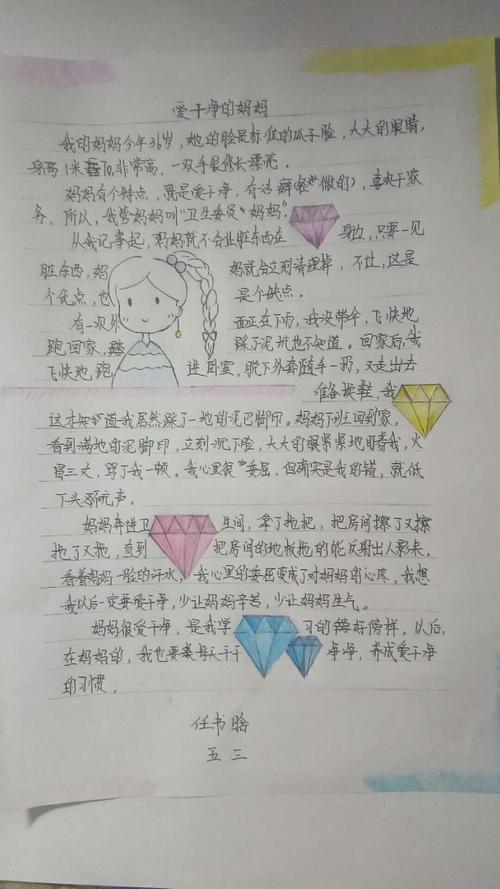 爱干净的妈妈
我的妈妈今年31岁，她的脸是标准的瓜子脸，大大的眼睛，
身高1米70,非常高，一双手很修长漂亮。
妈妈有个特点，就是爱干净，有洁癖（轻微的），喜欢干家
务，所以，我管妈妈叫"卫生委员"妈妈"。
从我记事起，妈妈就不会让脏东西在身边，只要一见
脏东西，妈妈就会立刻清理掉，不过，这是
个优点，也是个缺点。
有一次外面正在下雨，我没带伞，飞快地
跑回家，踏踩了泥坑也不知道。回家后，我
飞快地跑进卧室，脱下外套随手一扔，又走出去
准备换鞋，我
这才知道我居然踩了一地的泥巴脚印。妈妈下班回到家，
看到满地的泥脚印，立刻沉下脸，大大的眼紧紧地盯着我，火
冒三丈，骂了我一顿。我心里很委屈，但确实是我的错，就低
下头不吭声。
妈妈奔进卫生间，拿了拖把，把房间擦了又擦
拖了又拖，直到把房间的地板拖的能反射出人影来。
看着妈妈一脸的汗水，我心里的委屈变成了对妈妈的心疼，我想
我以后一定要爱干净，少让妈妈辛苦，少让妈妈生气。
妈妈很爱干净，是我学习的好榜样，以后，
在妈妈的，我也要每天干干净净，养成爱干净
的习惯。
任书晗
五三